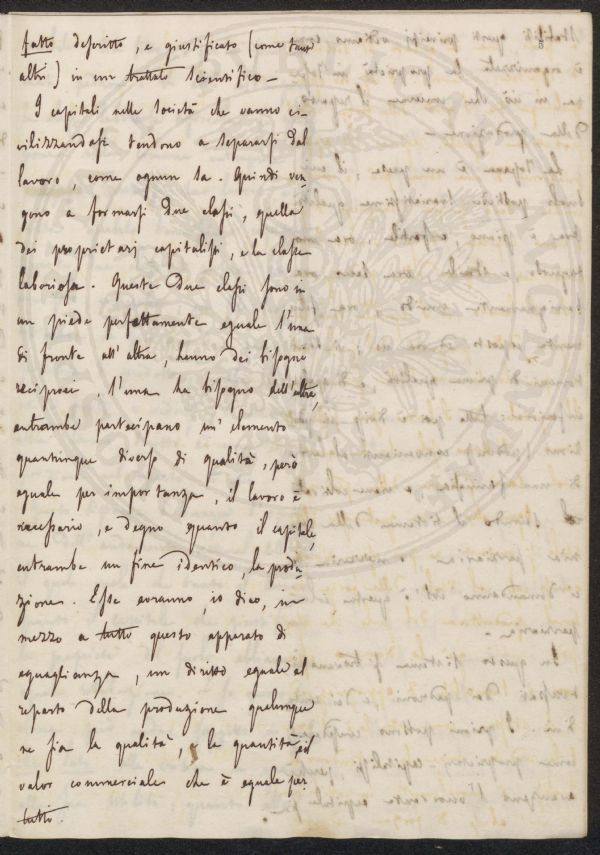 5
fatto descritto, e giustificato (come tanti
altri) in un trattato scientifico —
I capitali nelle società che vanno ci-
vilizzandosi tendono a separarsi dal
lavoro, come ognun sa. Quindi ven-
gono a formarsi due classi, quella
dei proprietarj capitalisti, e la classe
laboriosa. Queste due classi sono in
un piede perfettamente eguale l'una
di fronte all'altra, hanno dei bisogni
reciproci, l'una ha bisogno dell'altra,
entrambe partecipano un' elemento
quantunque diverso di qualità, però
eguale per importanza, il lavoro è
necessario, e degno quanto il capitale,
entrambe un fine identico, la produ-
zione. Esse avranno, io dico, in
mezzo a tutto questo apparato di
eguaglianza, un diritto eguale al
reparto della produzione qualunque
ne sia la qualità, la quantità, e il
valor commerciale che è eguale per
tutto.